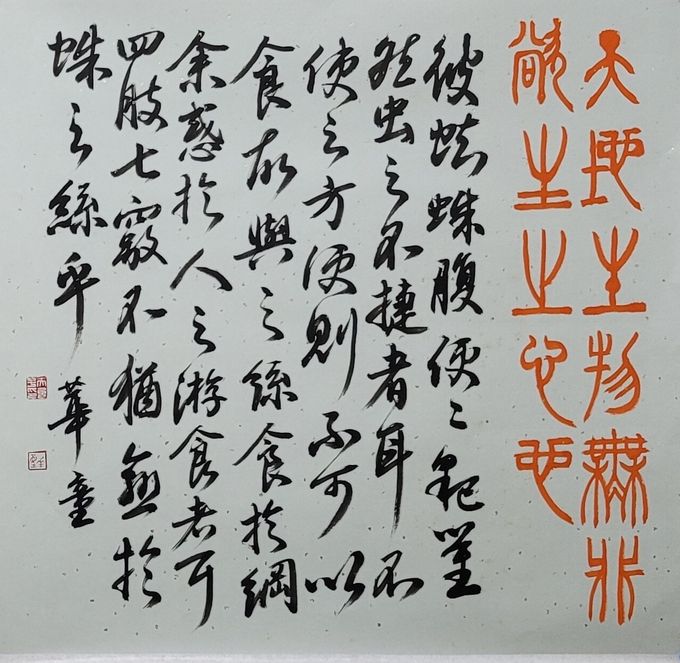 天地生物無非
生之心也
彼蜘蛛腹便〻
然虫之不捷者耳不
使之方便則不可以
食故與之絲食於網
余惑於人之游食者
四肢七竅不猶愈於
蛛之絲乎 華童